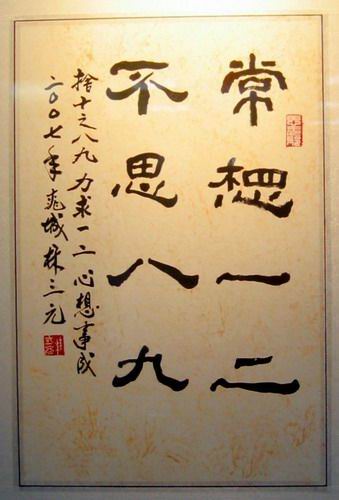 常想一二
不思八九
捨十之八九力求一二心想事成
二〇〇七年城林三元